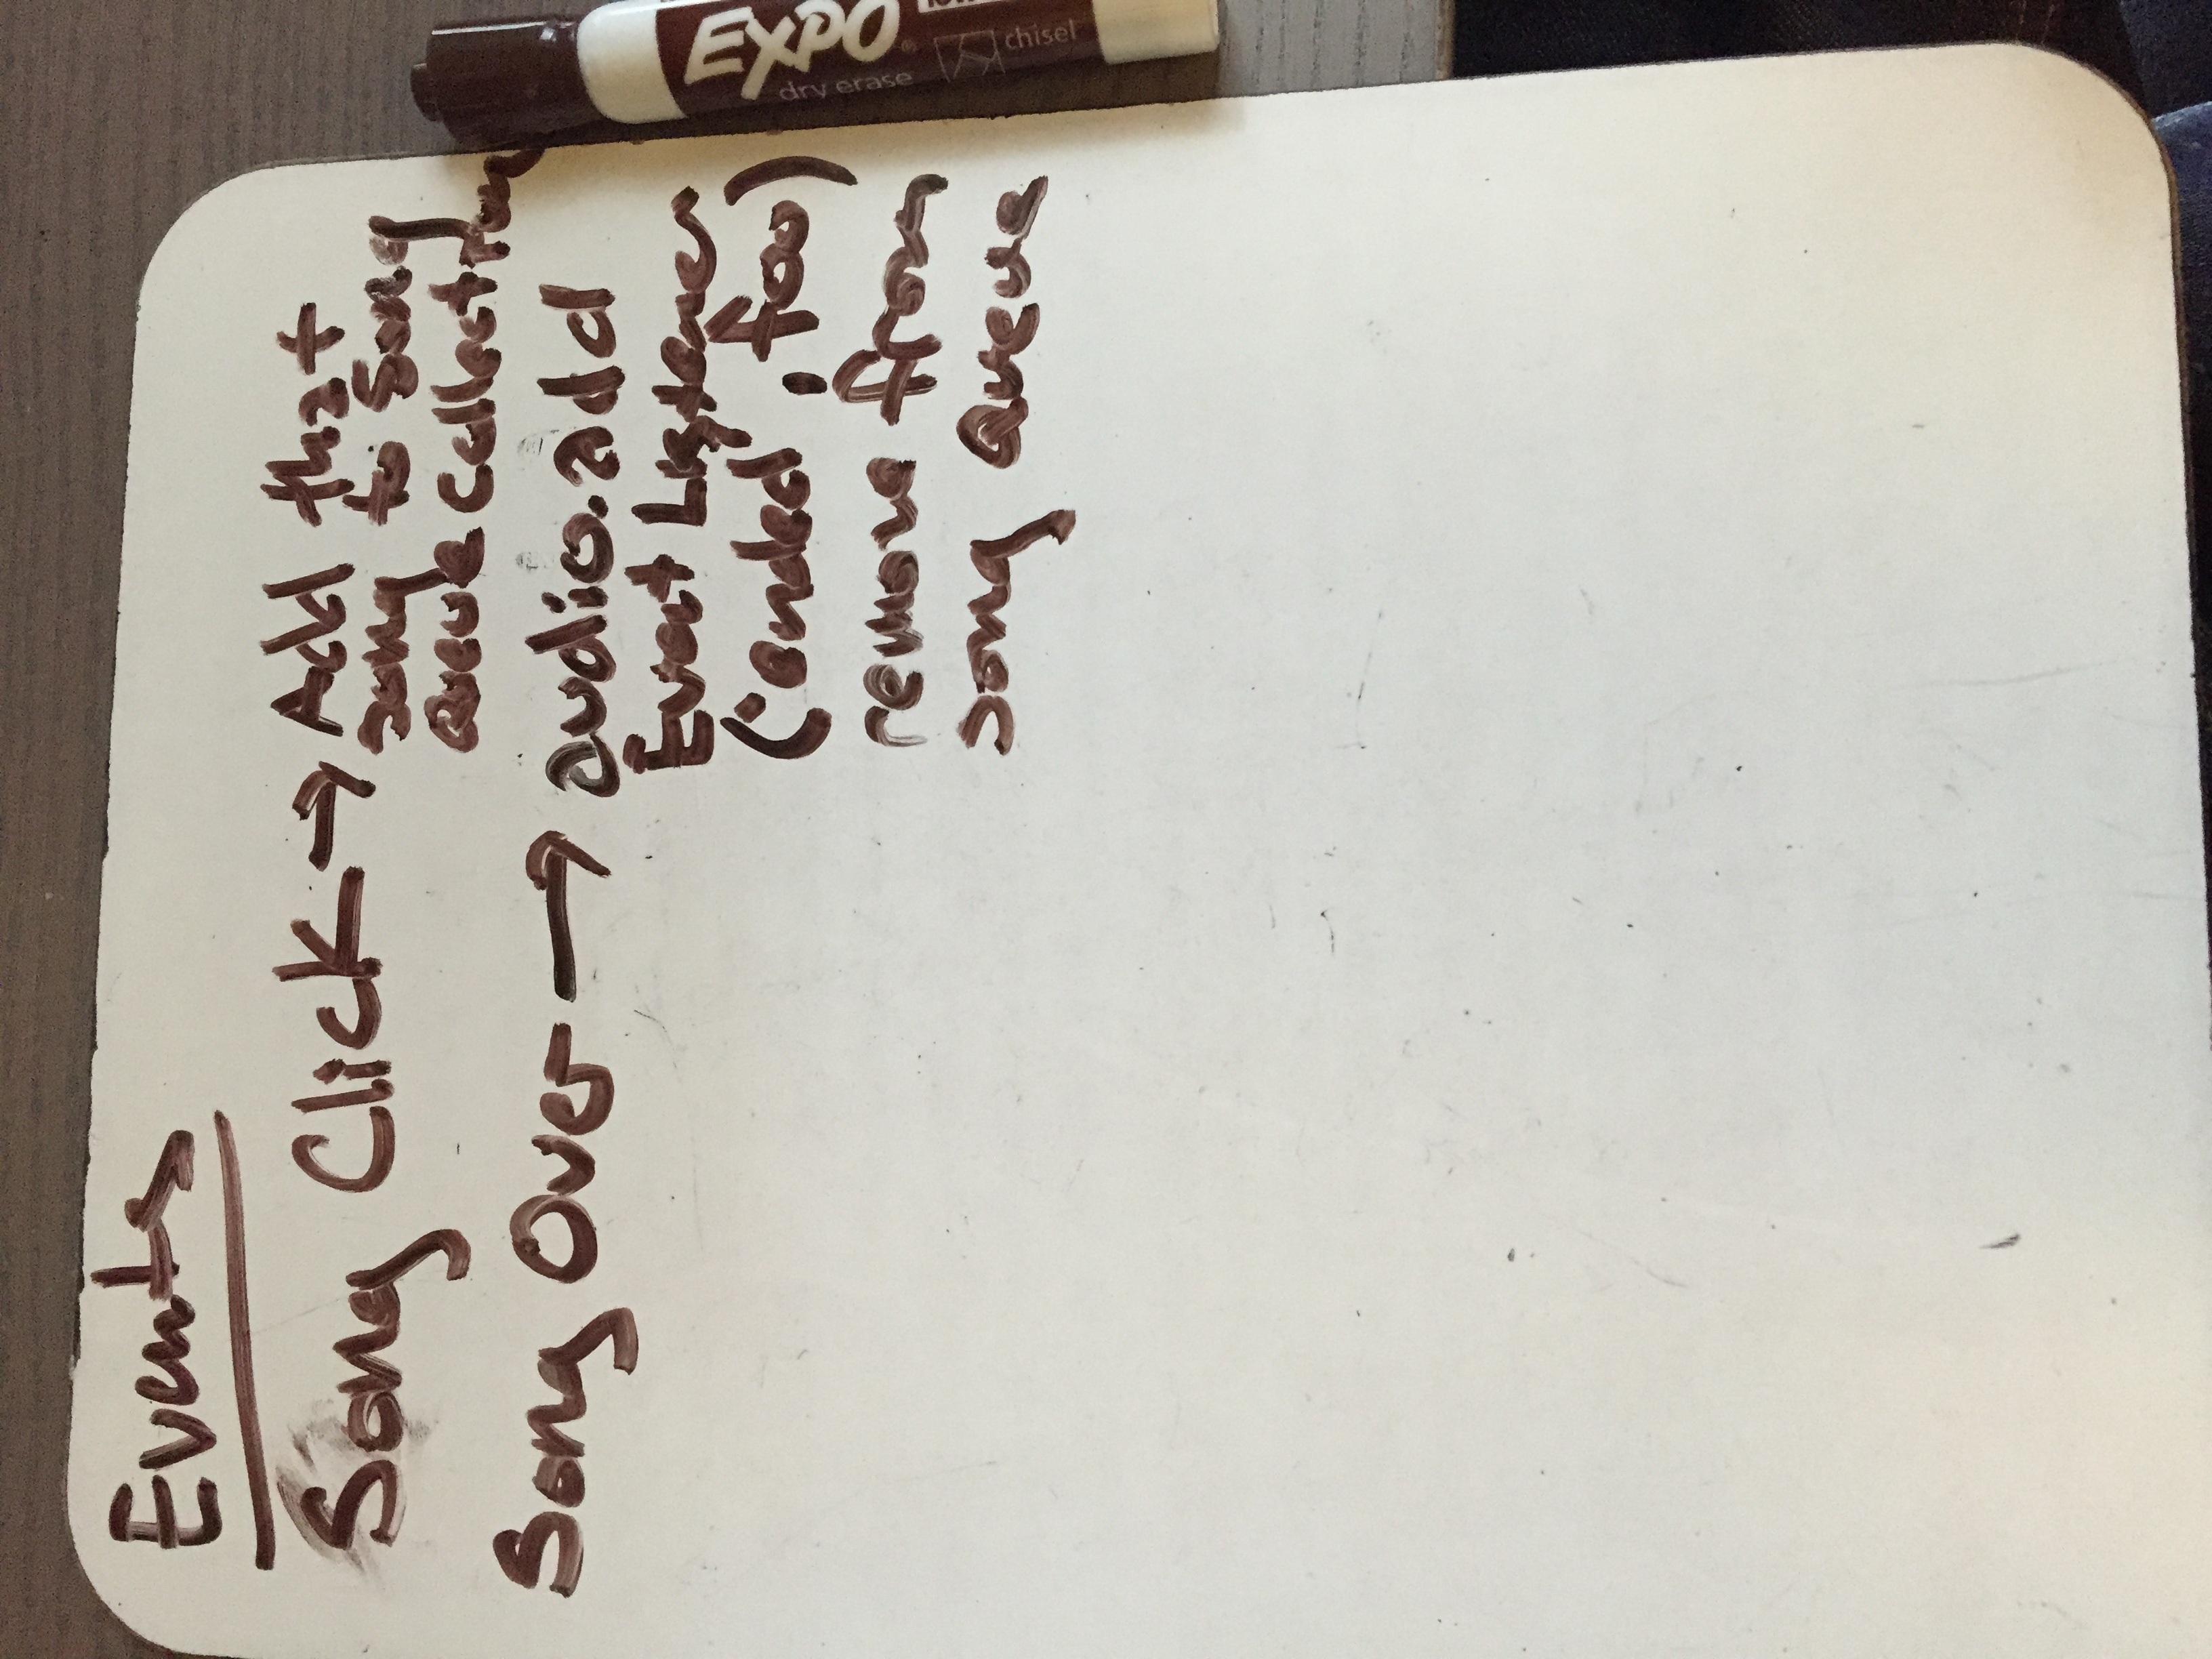 Events
Song Click → Add that
song to Song
Queue Collection
Song Over → audio.add
Event Listener
('ended', foo)
remove from
song Queue
EXPO
dry erase
chisel